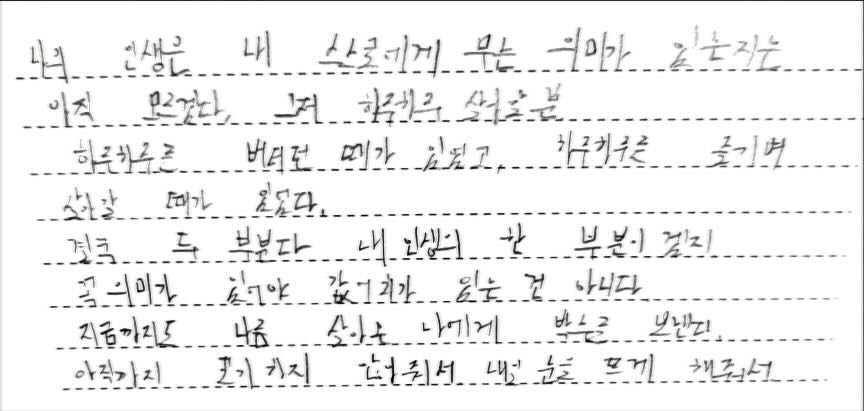 나의 인생은 내 스스로에게 무슨 의미가 있는지는
아직 모르겠다, 그저 하루하루 살아갈 뿐
하루하루를 버티던 때가 있었고, 하루하루를 즐기며
살아갈 때가 있었다,
결국 두 부분 다 내 인생의 한 부분이 걸지
꼭 의미가 있어야 값어치가 있는 건 아니다
지금까지도 나름 살아온 나에게 박수를 보낸다,
아직까지 포기하지 않아줘서 내일 눈을 뜨게 해줘서